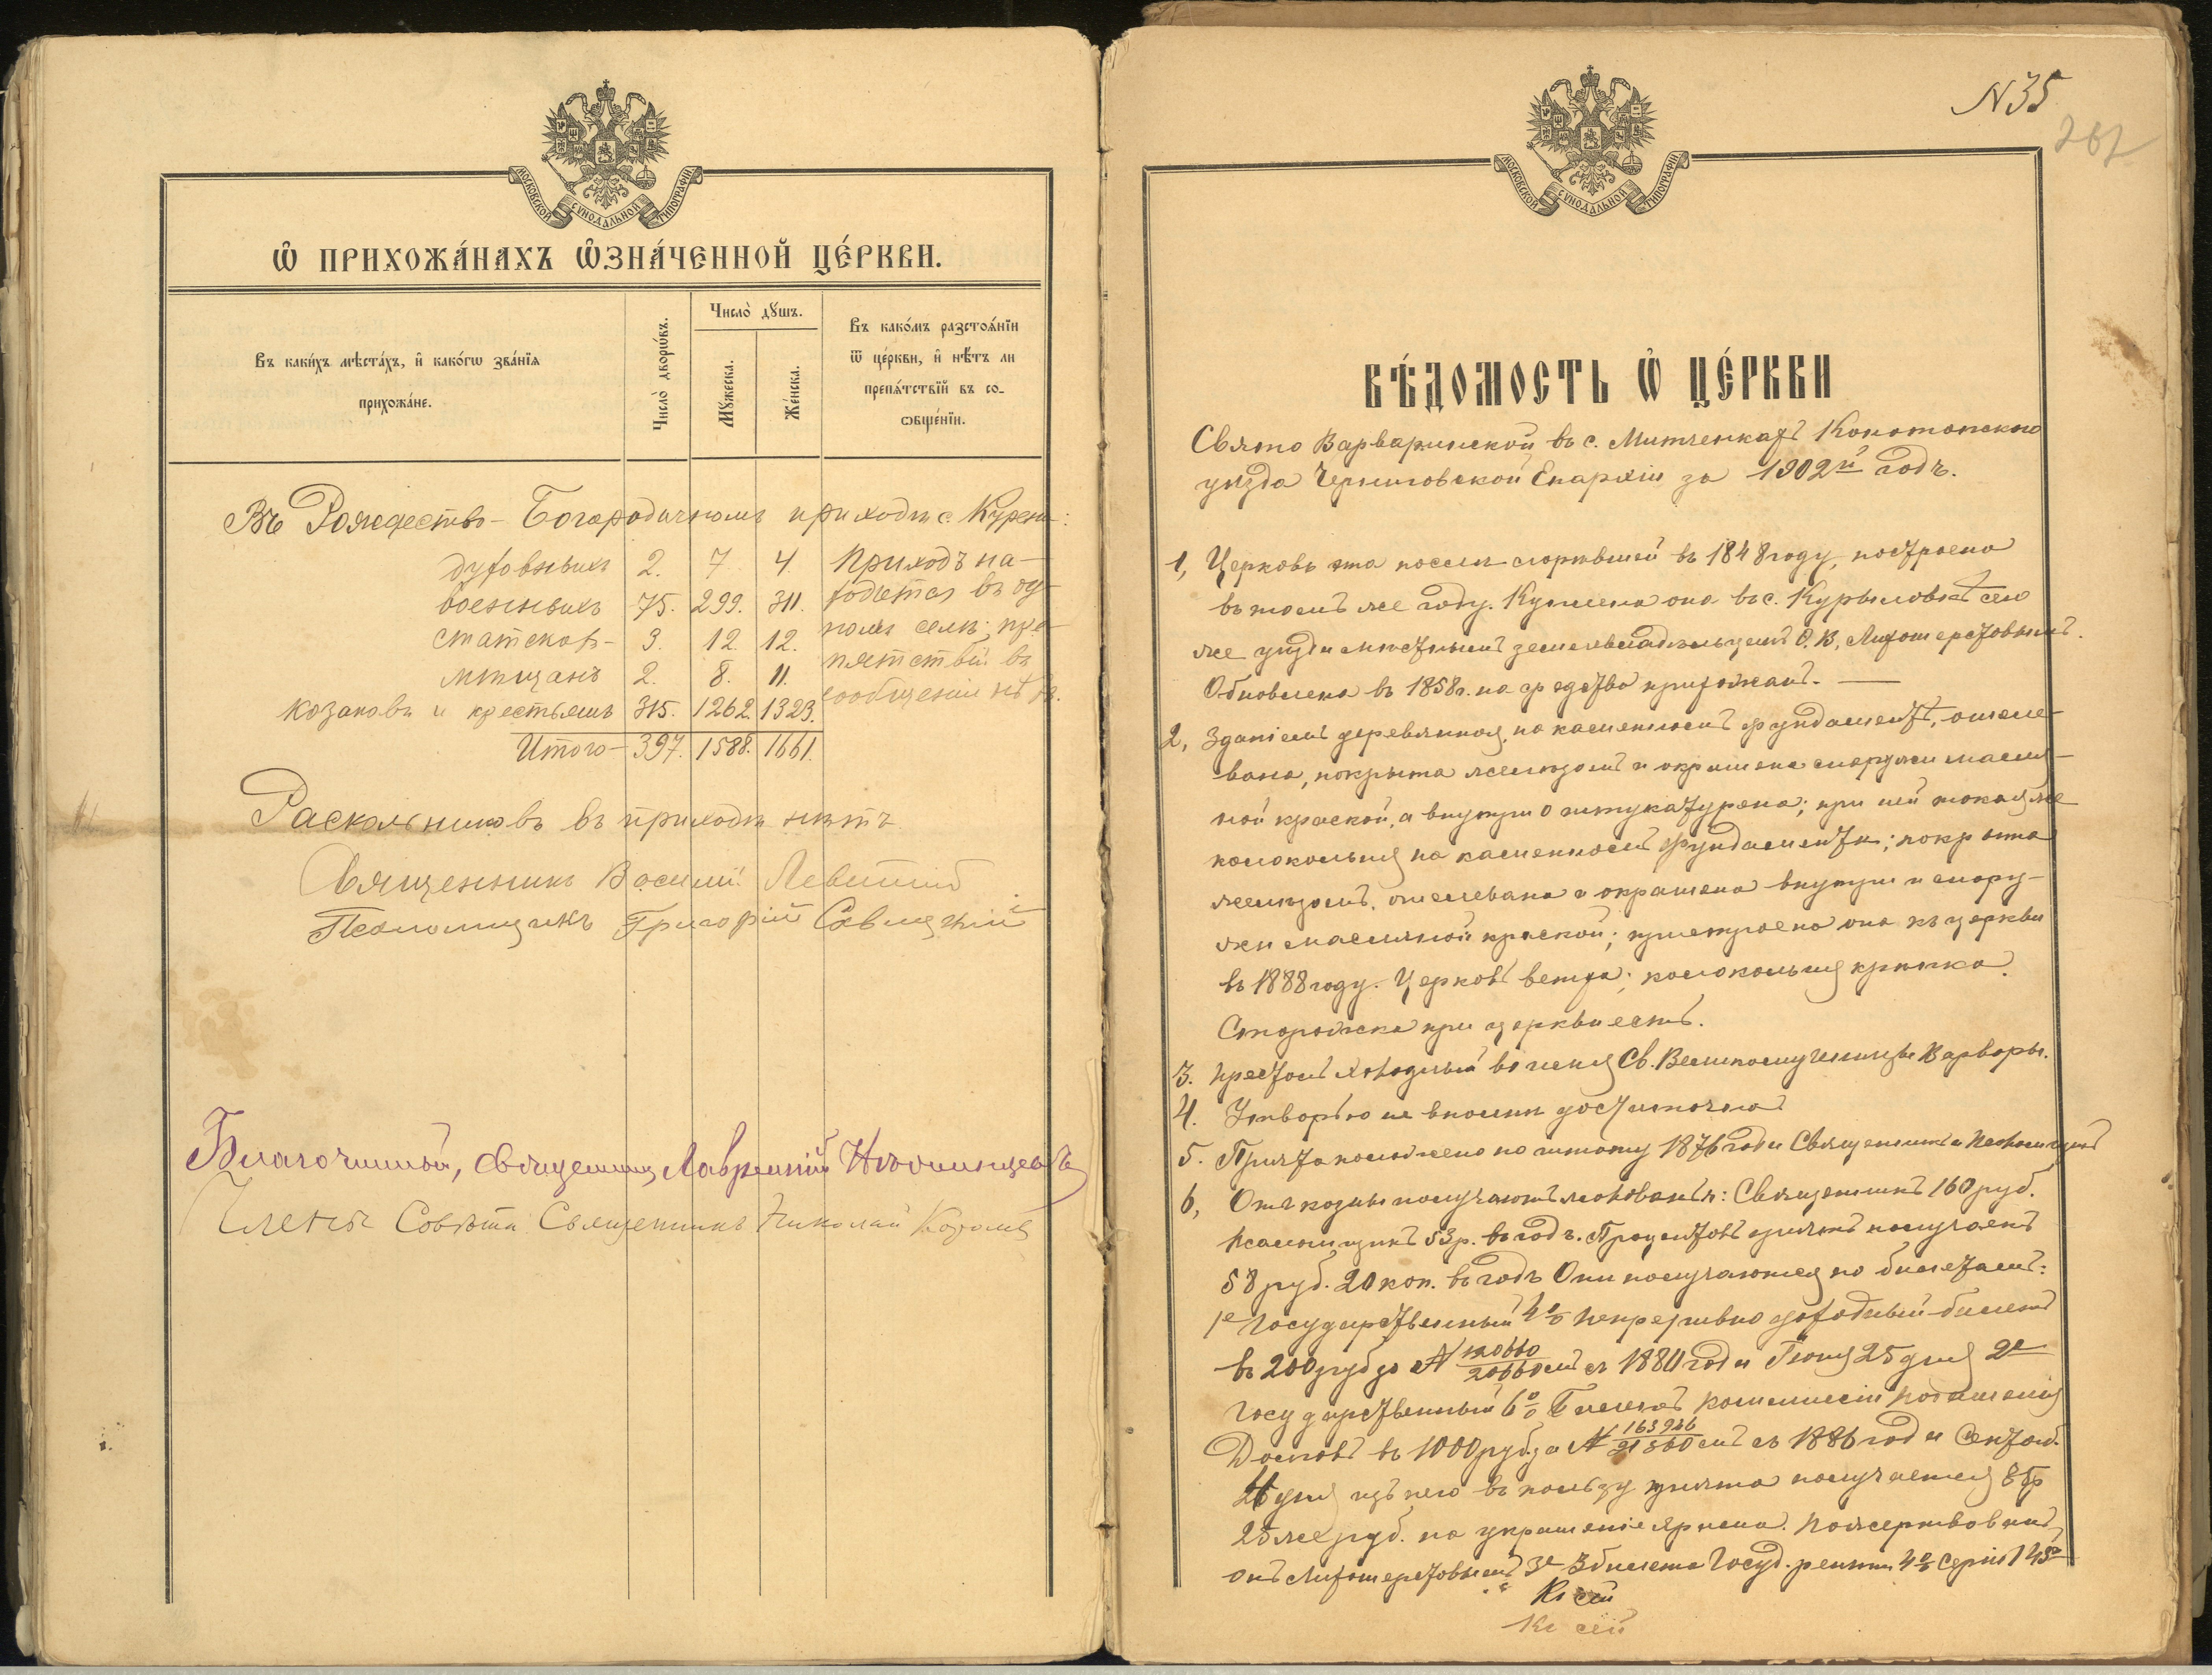 МОСКОВСКОЙ СѴНОДАЛЬНОЙ ТИПОГРАФІИ
Ѽ ПРИХОЖА́НАХЪ Ѡ҆ЗНА́ЧЕННОЙ ЦЕ́РКВИ.
Въ каки́хъ мѣста́хъ, и҆ како́гѡ зва́нїѧ
прихожа́не.
Число̀ дворѡ́въ.
Число̀ дꙋшъ.
Мꙋ́жеска.
Же́нска.
Въ како́мъ разстоѧ́нїи
ѿ це́ркви, и҆ нѣ́тъ ли
препѧ́тствїй въ со-
ѻбще́нїи.
Въ Рождество-Богородичномъ приходѣ с. Курень:
духовныхъ 2. 7. 4. Приходъ на-
военныхъ 75. 299. 311. ходится въ од-
статских- 3. 12. 12. номъ селѣ; пре-
мѣщанъ 2. 8. 11. пятствій въ
козаковъ и крестьянъ 315. 1262. 1323. сообщеніи нѣтъ.
Итого- 397. 1588. 1661.
Раскольниковъ въ приходѣ нѣтъ
Священникъ Василій Левитскій
Псаломщикъ Григорій Савицкій
Благочинный, Священникъ Лаврентій
Члены Совѣта Священникъ Николай
N 35
МОСКОВСКОЙ СѴНОДАЛЬНОЙ ТИПОГРАФІИ
ВѢ́ДОМОСТЬ Ѽ ЦЕ́РКВИ
Свято Варваринской въ с. Митченкахъ Конотопскаго
уѣзда Черниговской Епархіи за 1902й годъ.
1, Церковь эта послѣ сгорѣвшей въ 1848 году, построена
въ томъ же году. Куплена она въ с. Курыловкѣ сего
же уѣзда мѣстнымъ землевладѣльцемъ О. В. Лихошерстовымъ.
Обновлена въ 1858 г. на средства прихожанъ.
2, Зданіемъ деревянная, на каменномъ фундаментѣ, ошеле-
вана, покрыта желѣзомъ и окрашена снаружи масля-
ной краской, а внутри оштукатурена; при ней такая же
колокольня на каменномъ фундаментѣ; покрыта
желѣзомъ, ошелевана и окрашена внутри и снару-
жи масляной краской; пристроена она къ церкви
въ 1888 году. Церковь ветха; колокольня крѣпка.
Сторожка при церкви есть.
3. Престолъ холодный во имя Св. Великомученицы Варвары.
4. Утварью не вполнѣ достаточна
5. Причта положено по штату 1876 года Священникъ и Псаломщикъ
6, Отъ казны получаютъ жалованья: Священникъ 160 руб.
псаломщикъ 53 р. въ годъ. Процентовъ причтъ получаетъ
58 руб. 20 коп. въ годъ Они получаются по билетамъ:
1е Государственный 4% непрерывно доходный билетъ
въ 200 руб за N 120660 20660 съ 1880 года Іюня 25 дня 2е
Государственный 6% Билетъ Коммиссіи погашенія
Долговъ въ 1000 руб. за N 163946 съ 1886 года Сентяб.
дня изъ него въ пользу причта получается
25 же руб. на украшеніе храма. Пожертвован
онъ Лихошерстовымъ 3е 3 билета Госуд. ренты 4% серіи
Къ сей
Къ сей